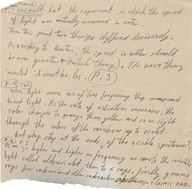 but the experiment in which the speed
of light was actually measured in water
From this point two theories differed decisively.
According to Newton, the speed in water should
be even greater (Particle Theory). The wave theory
insisted it must be less. (P. 3)
light waves are of low frequency they
red light. As the rate of vibration increases, the
color changes to orange then yellow and even
through the colors of the rainbow up to violet.
But why stop at the ends of the visible spectrum?
higher and higher in frequency we enter the invisible
light called ultraviolet then to x-rays, finally gamma
rays